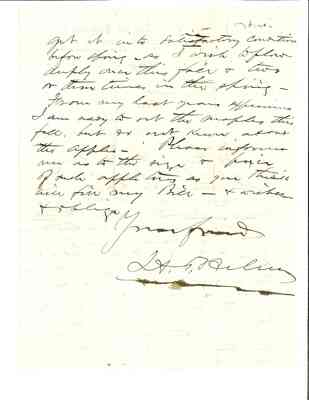 get it into satisfactory condition
before spring as I wish to plow
deeply once this fall & two
or three times in the spring -
From my last years experience
I am easy to set the maples this
fall, but do not know about
the apples - Please inform
me as to the size & price
of such apple trees as you think
will fill my Bill - &
& oblige
Your friend